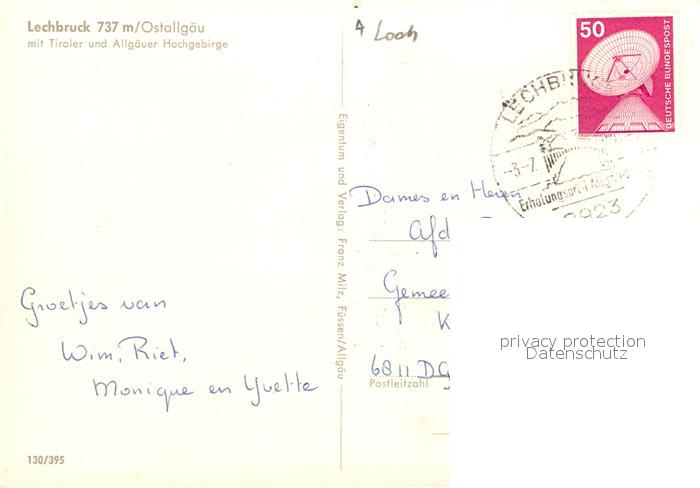 Lechbruck 737 m/Ostallgäu
mit Tiroler und Allgäuer Hochgebirge
Groetjes van
Wim, Riet,
Monique en Yvette
130/395
Eigentum und Verlag: Franz Milz, Füssen/Allgäu
50
DEUTSCHE BUNDESPOST
LECHBRUCK
-3-7.
Erholungsort i. Allgäu
8923
Dames en Heren
Afd
Gemee
K
6811 DG
Postleitzahl
privacy protection
Datenschutz